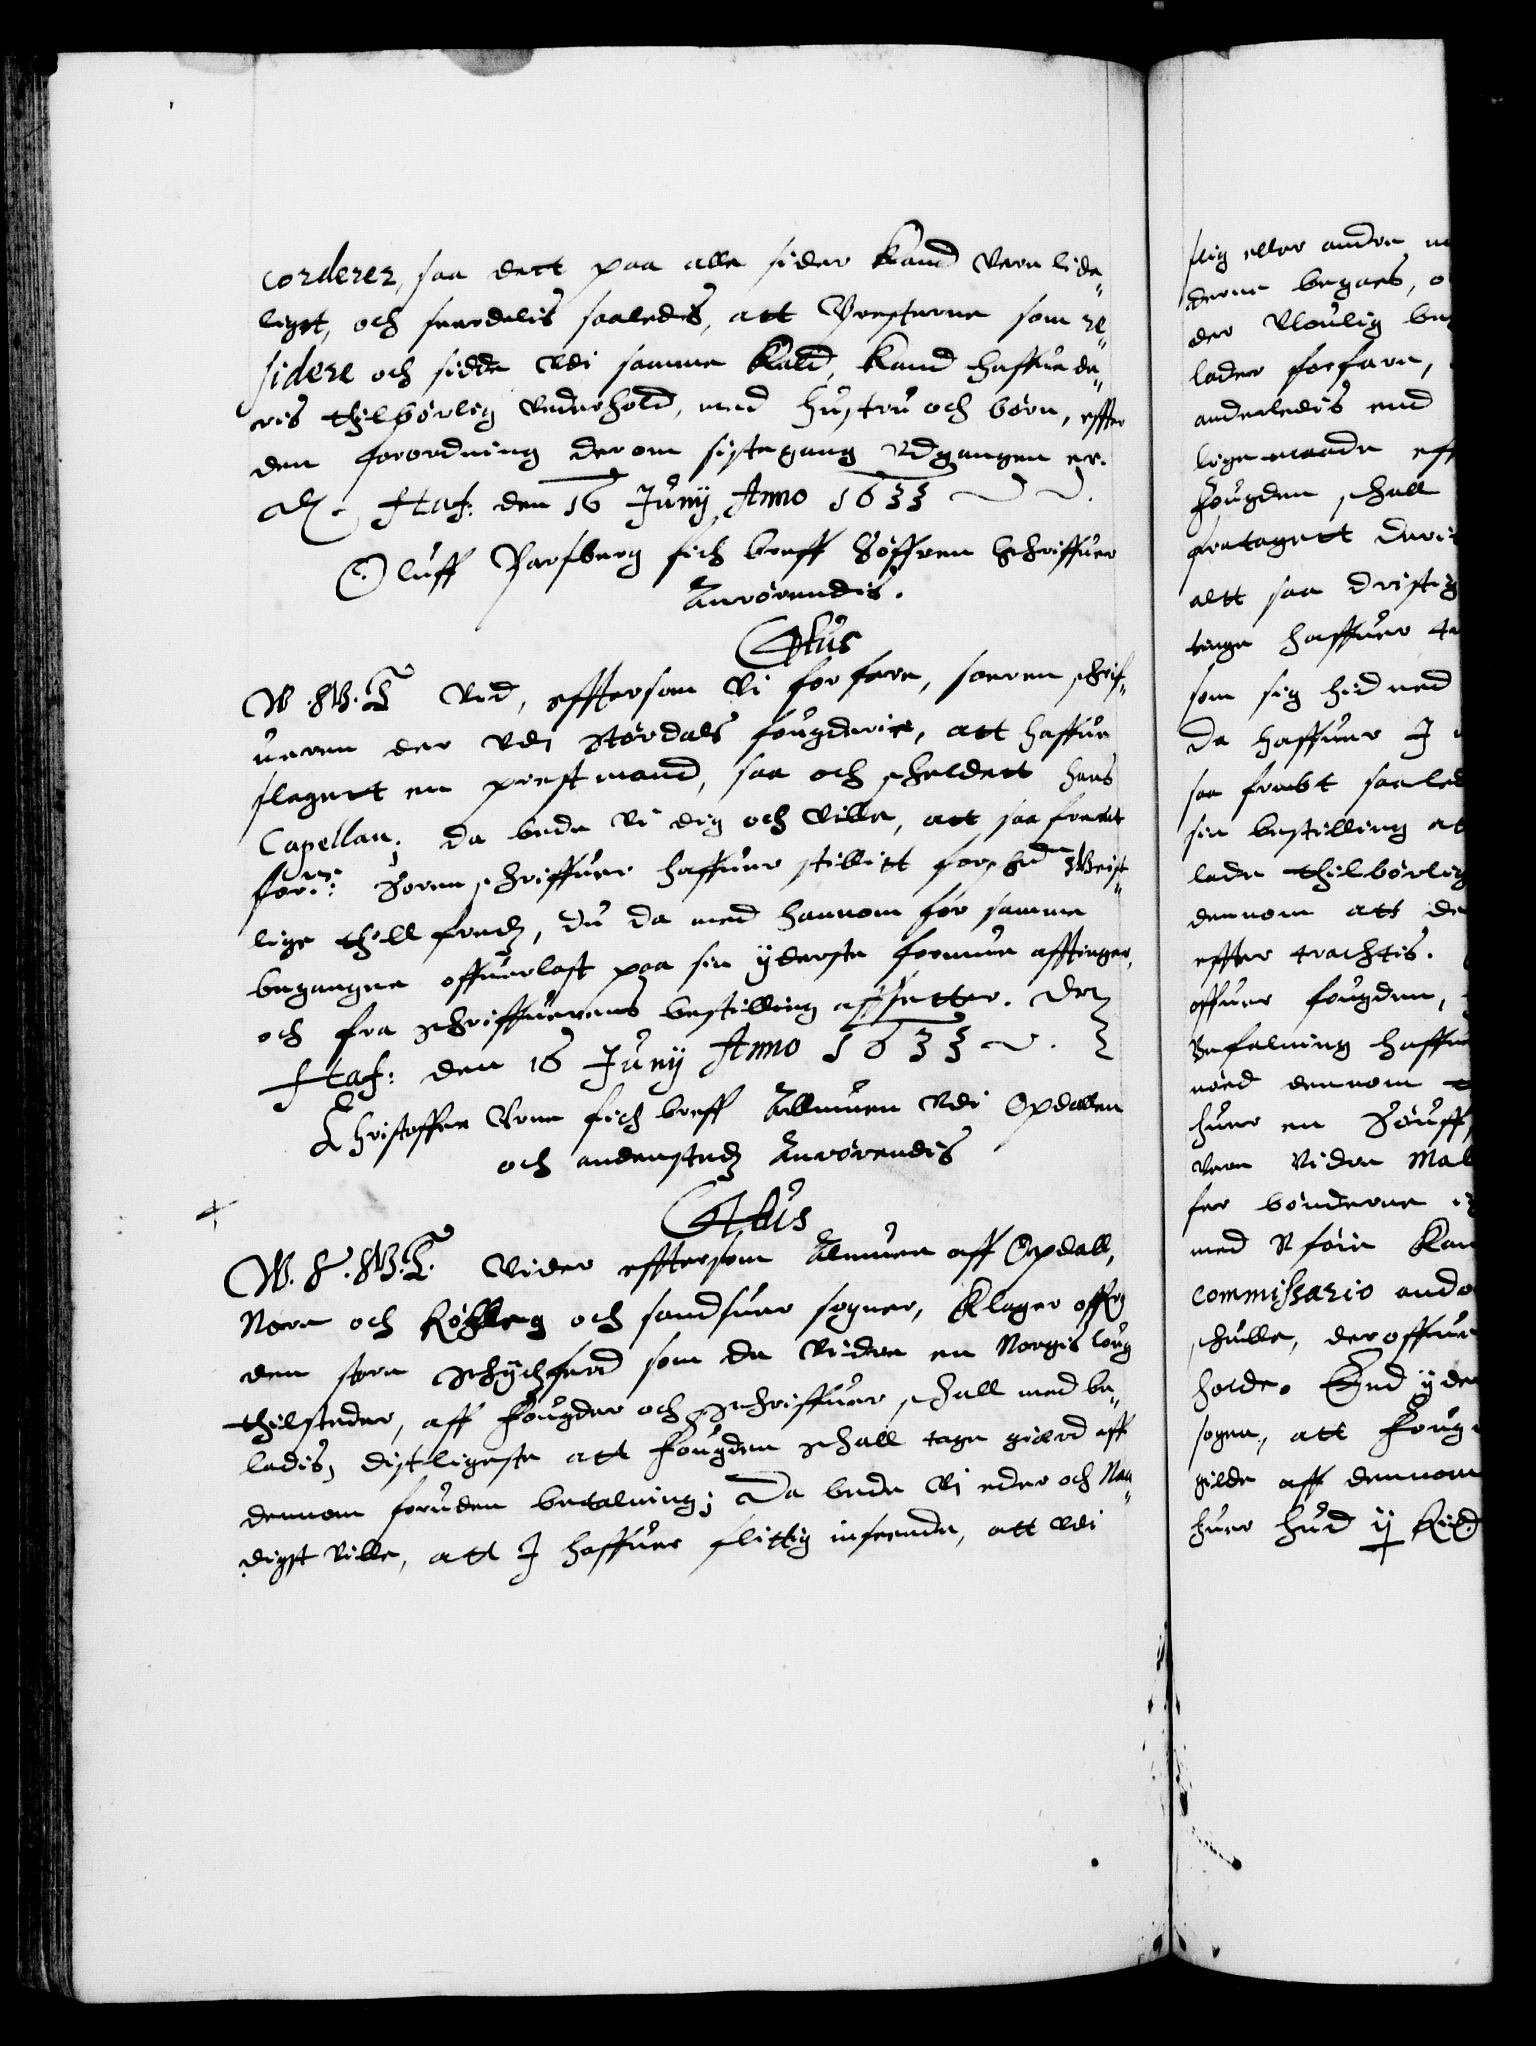 corderer, saa dett paa alle sider kand vere lide¬
ligst, och serdelis saaledis, att Presterne som re¬
sidere och sidde udi samme Kald, kand haffue de¬
ris thilbørlig underhold, med hustru och børn, effter
den forordning derom sistegang udgangen er.
Haf: den 16 Junij Anno 1633
Oluff Parsberg fich breff Søffren Schriffuer
Anrørendis.
C4tus
W. G. T. vid, effttersom vi forfare, soeren schrif¬
ueren der udi Størdals fougderie, att haffue
slagett en prestmand, saa och scheldett hans
Capellan; da bede vi dig och ville, att saa fremt
forne: Soren schriffuer haffuer stillitt forschne Geist¬
lige thill freds, du da med hannom for samme
begangne offuerlast paa sin yderste formue afftinger,
och fra schriffuerens bestilling affsetter. Der
Haf: den 16 Junij Anno 1633
Christoffer Urne fich breff Allmuen udi Opdallen
och andensteds Anrørendis
C4tus
W. S. G. T. Vider effttersom Almuen aff Opdall,
Nore och Rølleg och sandsuer sogner, klager offr
den store schydsferd som de videre en Norgis loug
thilsteder, aff Fougder och Schriffuer schall med be¬
ladis, disligeste att Fougden schall tage giærd aff
dennom foruden betalning; Da bede vi eder och Naa¬
digst ville, att J haffuer flittig inseende, att udi
slig eller andre
derne begaes,
der Uloulig
lader forfare,
anderledis end
ligemaade
Fougden schall
fratagett
altt saa dristig
tinge haffuer
som sig hid ned
Da haffuer J
saa frembt
sin bestilling
lade thilbørlig
dennom att de
effter trachtis.
offuer fougden,
Befalning
nøed dennom
huer en
vere videre
for bønderne
med Rføie
commissario
schulle,
holde. End yder
sogen, att
gilde aff dennom
huer hud ij